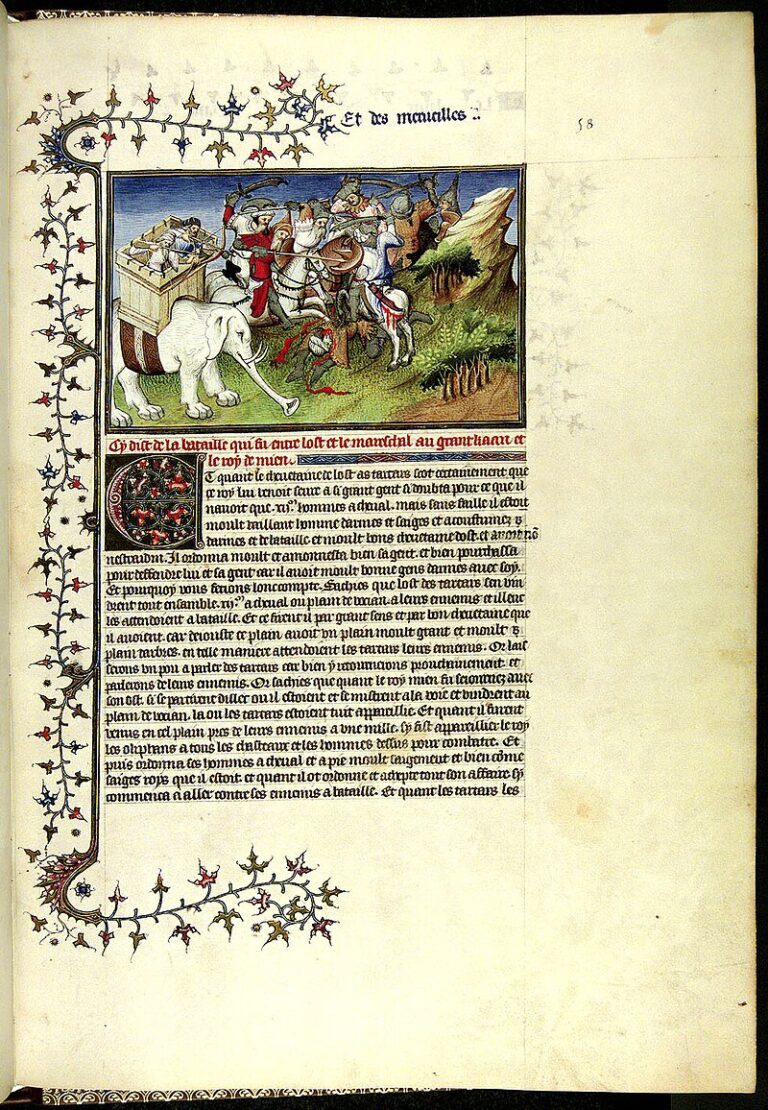 Et des merueilles
58
Cy dist de la bataille qui fu entre lost et le mareschal au grant kaan et
le roy de mien.
Et quant le cheuetaine de lost as tartars scot certainement que
ce roy lui venoit seure a si grant gent si doubta pour ce que il
nauoit que .xij.m hommes a cheual. mais sans faille il estoit
moult vaillant homme darmes et saiges et acoustumez
darmes et de bataille et moult bons cheuetaine dost. et auoit nō
nestraidin. Il ordonna moult et amonnesta bien sa gent. et bien pourchassa
pour deffendre lui et sa gent car il auoit moult bonne gens darmes auec soy.
Et pourquoy vous feroins loncompte. Sachies que lost des tartars sen vin
drent tout ensemble .xij.m a cheual ou plain de vocian. a leurs ennemis et illeuc
les attendoient a bataille. Et ce firent il par grant sens et par bon cheuetaine que
il auoient. car de iouste ce plain auoit vn plain moult grant et moult
plain darbres. en telle maniere attendoient les tartars leurs ennemis. Or lais
serons vn pou a parler des tartars car bien y retournerons prouchainement. et
parlerons de leurs ennemis. Or sachies que quant le roy mien fu seiournez auec
son ost. si se partirent diller ou il estoient et se mistrent a la voie et vindrent au
plain de vocian. la ou les tartars estoient tuit appareillie. Et quant il furent
venus en cel plain pres de leurs ennemis a vne mille. sy fist appareillier le roy
les oliphans a tous les chasteaux et les hommes dessus pour combatre. Et
puis ordonna ses hommes a cheual et a pie moult saigement et bien cōme
saiges roys que il estoit. et quant il ot ordonne et adrepte tout son affaire sy
commenca a aller contre ses ennemis a bataille. Et quant les tartars les